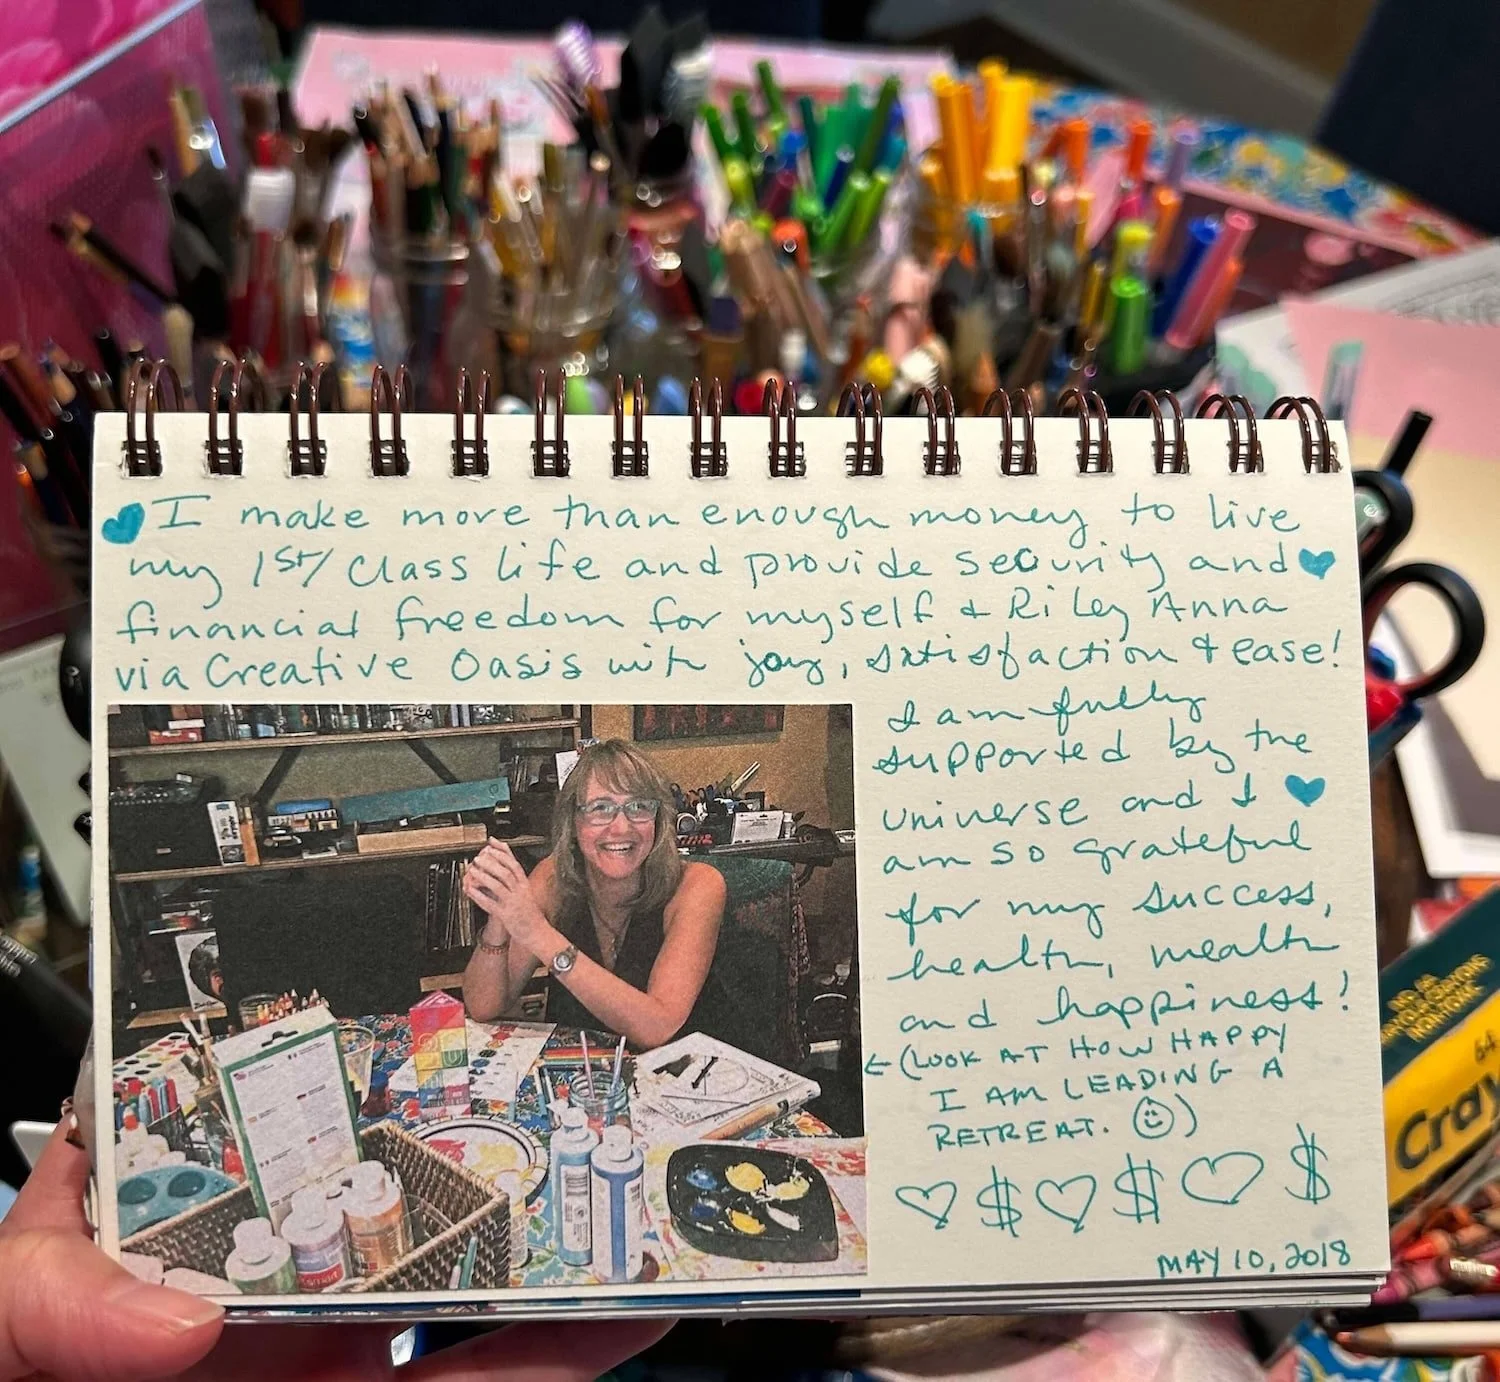 I make more than enough money to live
my 1st/class life and provide security and
financial freedom for myself & Riley Anna
via Creative Oasis with joy, satisfaction & ease!
I am fully
supported by the
universe and I
am so grateful
for my success,
health, wealth
and happiness!
← (LOOK AT HOW HAPPY
I AM LEADING A
RETREAT. ☺)
♡ $ ♡ $ ♡ $
MAY 10, 2018
64
Cray